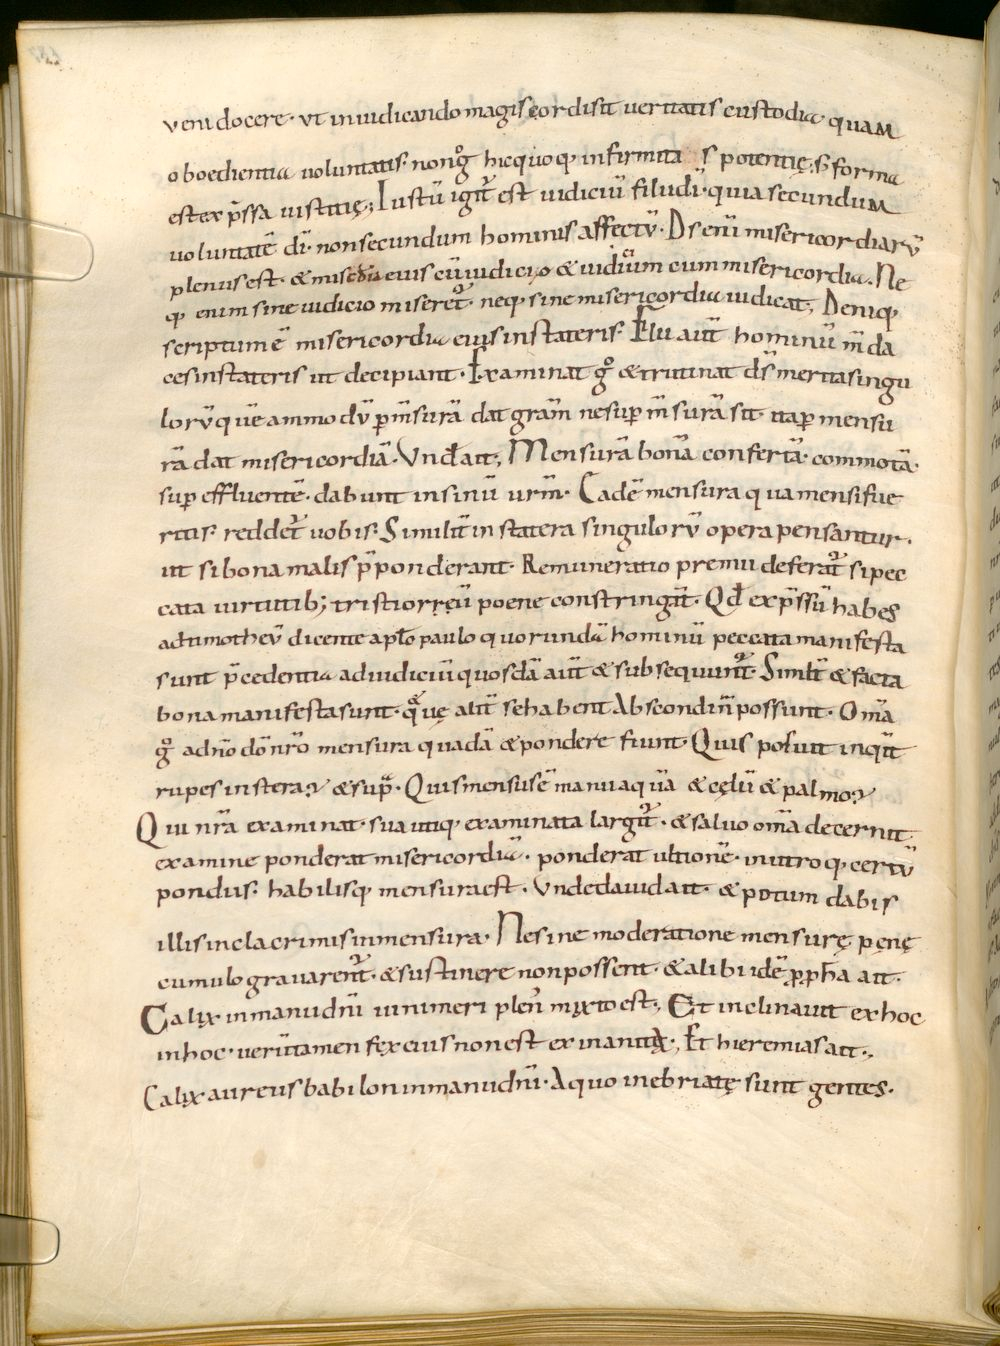 veni docere · ut in iudicando magis cordi sit ueritatis custodia quam
oboedientia uoluntatis · non g̊ hic quoq; infirmita s potentię · s; forma
est exp̄ssa iustitię ; Iustū igit̄ est iudiciū filii dī · quia secundum
uoluntatē dī · non secundum hominis affectū · D̄s enī misericordiarū
plenus est · & mis̄cdia eius cū iudicio & iudiciūm cum misericordia · Ne
q; enim sine iudicio miseret̄ · neq; sine misericordia iudicat ; Deniq;
scriptum ē misericordia eius in stateris · Filii aūt hominū m̄da
ces in stateris ut decipiant · Examinat g̊ & trutinat d̄s merita singu
lorū quē ammodū p mīsurā dat gram̄ ne sup m̄surā sit · ita p mensu
rā dat misericordiā · Und̄ ait ; Mensurā bonā confertā · commotā ·
sup effluentē · dabunt in sinū urm̄ · Eadē mensura qua mensi fue
ritis · reddet̄ uobis · Similit̄ in statera singulorū opera pensantur ·
ut si bona malis p̄ponderant · Remuneratio premii deferat̄ si pec
cata uirtutib; tristior reū poene constringit̄ · Qd̄ exp̄ssū habes
ad timotheū dicente aplo paulo quorundā hominū peccata manifesta
sunt p̄cedentia ad iudiciū quosdā aūt & subsequunt̄ · Similit̄ & facta
bona manifesta sunt · q̄ uę alit̄ se habent Abscondi n̄ possunt · Omā
g̊ ad n̄o dō nr̄o mensura quadā & pondere fiunt · Quis posuit inquit
rupes in stera? & sup̄ · Quis mensus ē manu aquā & cęlū & palmo?
Qui nrā examinat · sua utiq; examinata largit̄ · & saluo omā decernit
examine ponderat misericordiā · ponderat ultionē · in utroq; certū
pondus · habilisq; mensura est · Unde dauid ait · & potum dabis
illis in lacrimis in mensura · Ne sine moderatione mensurę pęnę
cumulo grauarent̄ · & sustinere non possent · & alibi idē pp̄h̄a ait ·
Calix in manu dn̄i uini meri plen̄ mixto est ; Et inclinauit ex hoc
in hoc · uerūtamen fęx eius non est exinanita ; Et hieremias ait ·;
Calix aureus babilon in manu dn̄i · A quo inebriatę sunt gentes ·